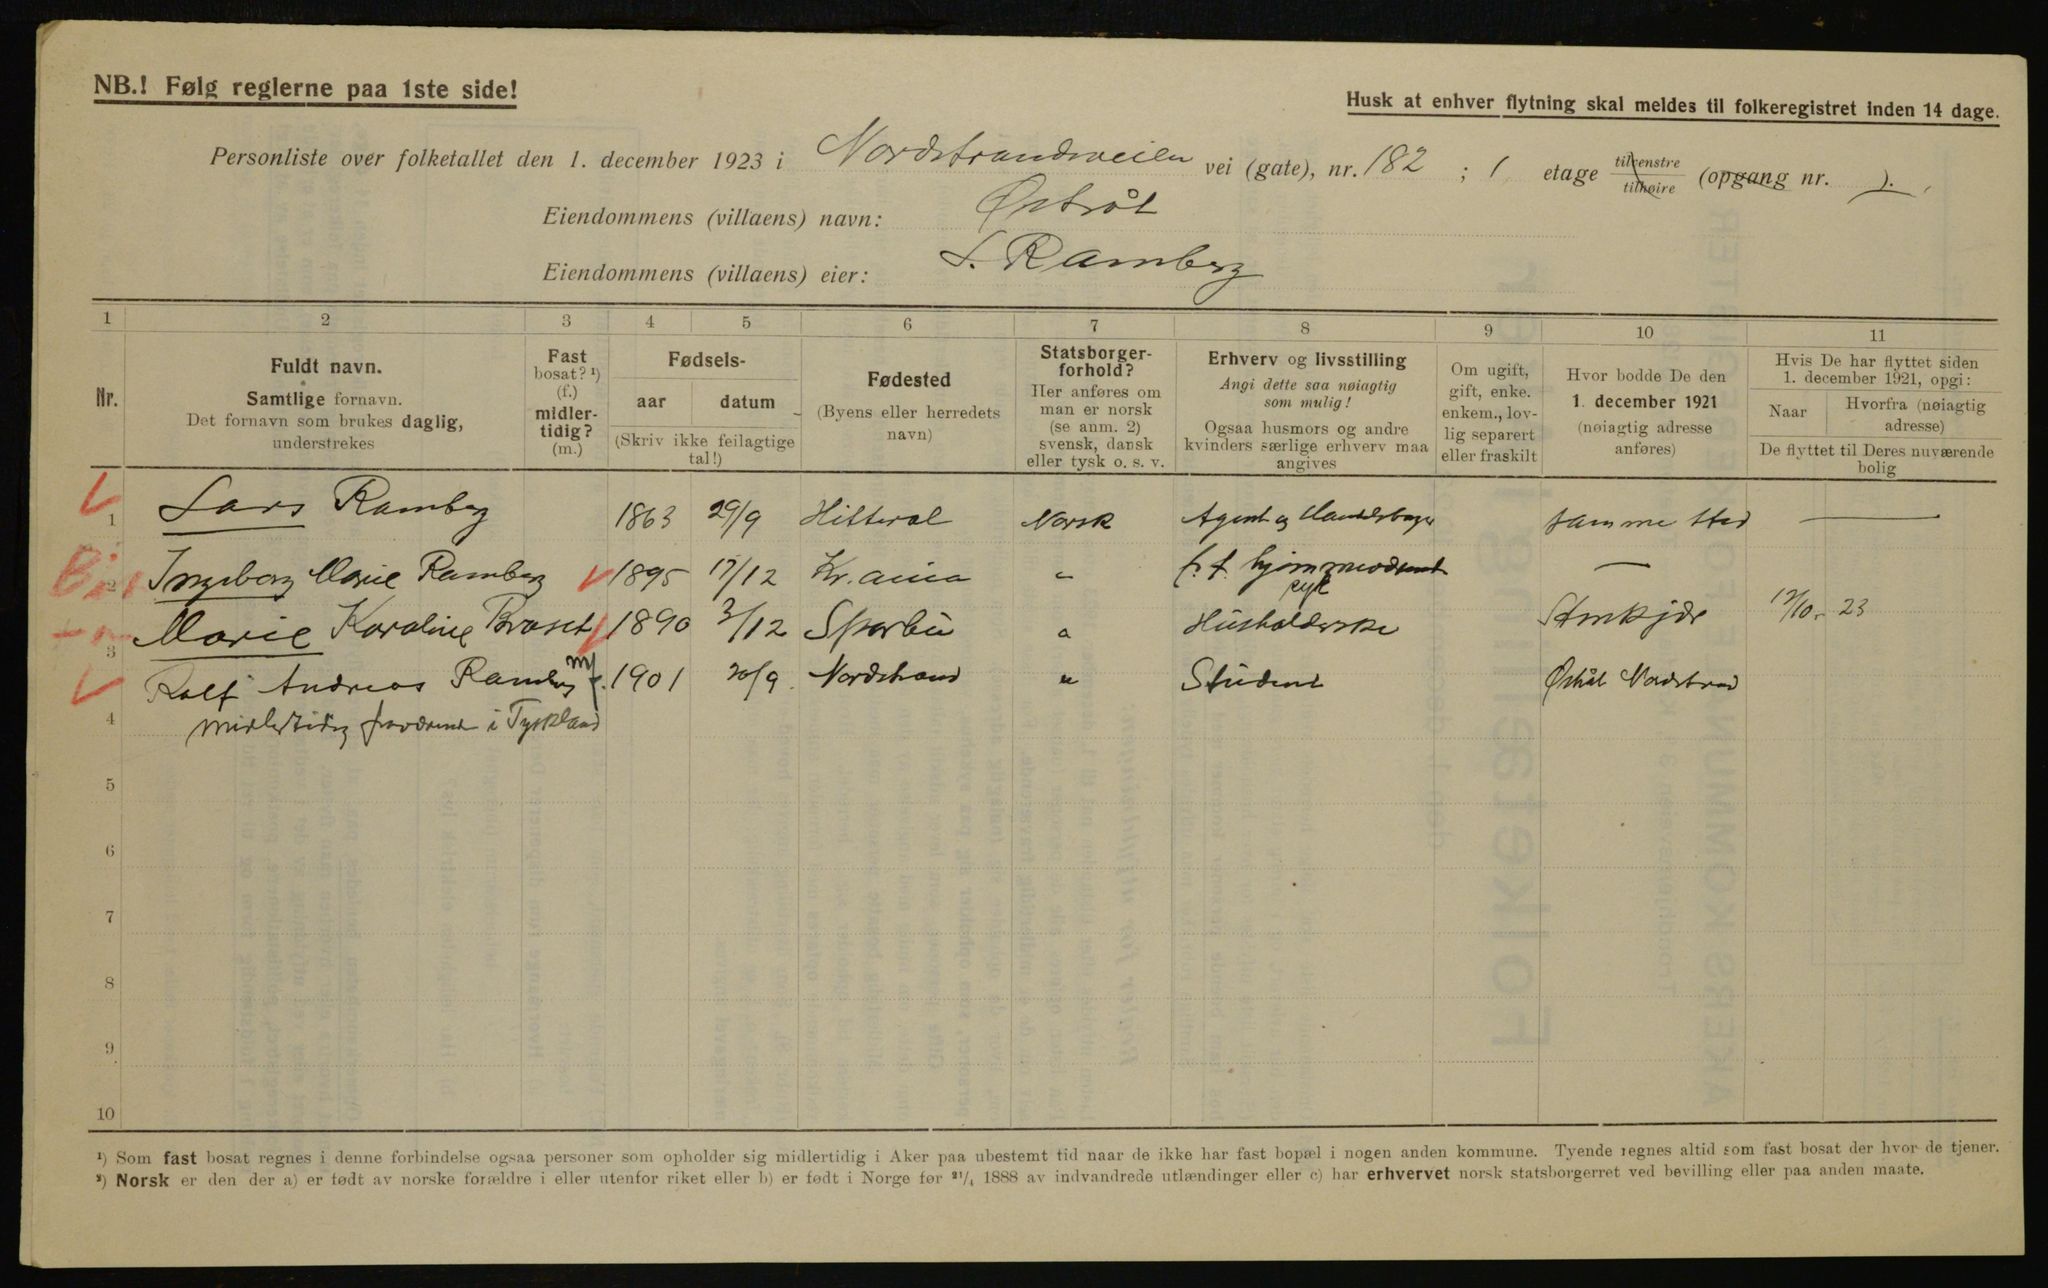 NB.! Følg reglerne paa 1ste side!
Husk at enhver flytning skal meldes til folkeregistret inden 14 dage.
Personliste over folketallet den 1. december 1923 i Nordstrandsveien vei (gate), nr. 182 ; 1 etage tilvenstre tilhøire (opgang nr. ).
Eiendommens (villaens) navn: Østråt
Eiendommens (villaens) eier: L. Ramberg
1 2 3 4 5 6 7 8 9 10 11
Nr.
Fuldt navn.
Samtlige fornavn.
Det fornavn som brukes daglig,
understrekes
Fast
bosat? ¹)
(f.)
midler-
tidig?
(m.)
Fødsels-
aar datum
(Skriv ikke feilagtige
tal!)
Fødested
(Byens eller herredets
navn)
Statsborger-
forhold?
Her anføres om
man er norsk
(se anm. 2)
svensk, dansk
eller tysk o. s. v.
Erhverv og livsstilling
Angi dette saa nøiagtig
som mulig!
Ogsaa husmors og andre
kvinders særlige erhverv maa
angives
Om ugift,
gift, enke.
enkem., lov-
lig separert
eller fraskilt
Hvor bodde De den
1. december 1921
(nøiagtig adresse
anføres)
Hvis De har flyttet siden
1. december 1921, opgi:
Naar Hvorfra (nøiagtig
adresse)
De flyttet til Deres nuværende
bolig
1 Lars Ramberg 1863 29/9 Hitterøl Norsk Agent og samme sted —
2 Ingeborg Marie Ramberg 1895 /12 Kr.ania " —
3 Marie Karoline Braset 1890 3/12 Sparbu " Husholderske Stenkjær /10 - 23
Rolf Andreas Ramberg m/f. 1901 20/9 Nordstrand " Student Østråt Nordstrand
4 midlertidig fraværende i Tyskland
5
6
7
8
9
10
¹) Som fast bosat regnes i denne forbindelse ogsaa personer som opholder sig midlertidig i Aker paa ubestemt tid naar de ikke har fast bopæl i nogen anden kommune. Tyende regnes altid som fast bosat der hvor de tjener.
²) Norsk er den der a) er født av norske forældre i eller utenfor riket eller b) er født i Norge før ²¹/₄ 1888 av indvandrede utlændinger eller c) har erhvervet norsk statsborgerret ved bevilling eller paa anden maate.